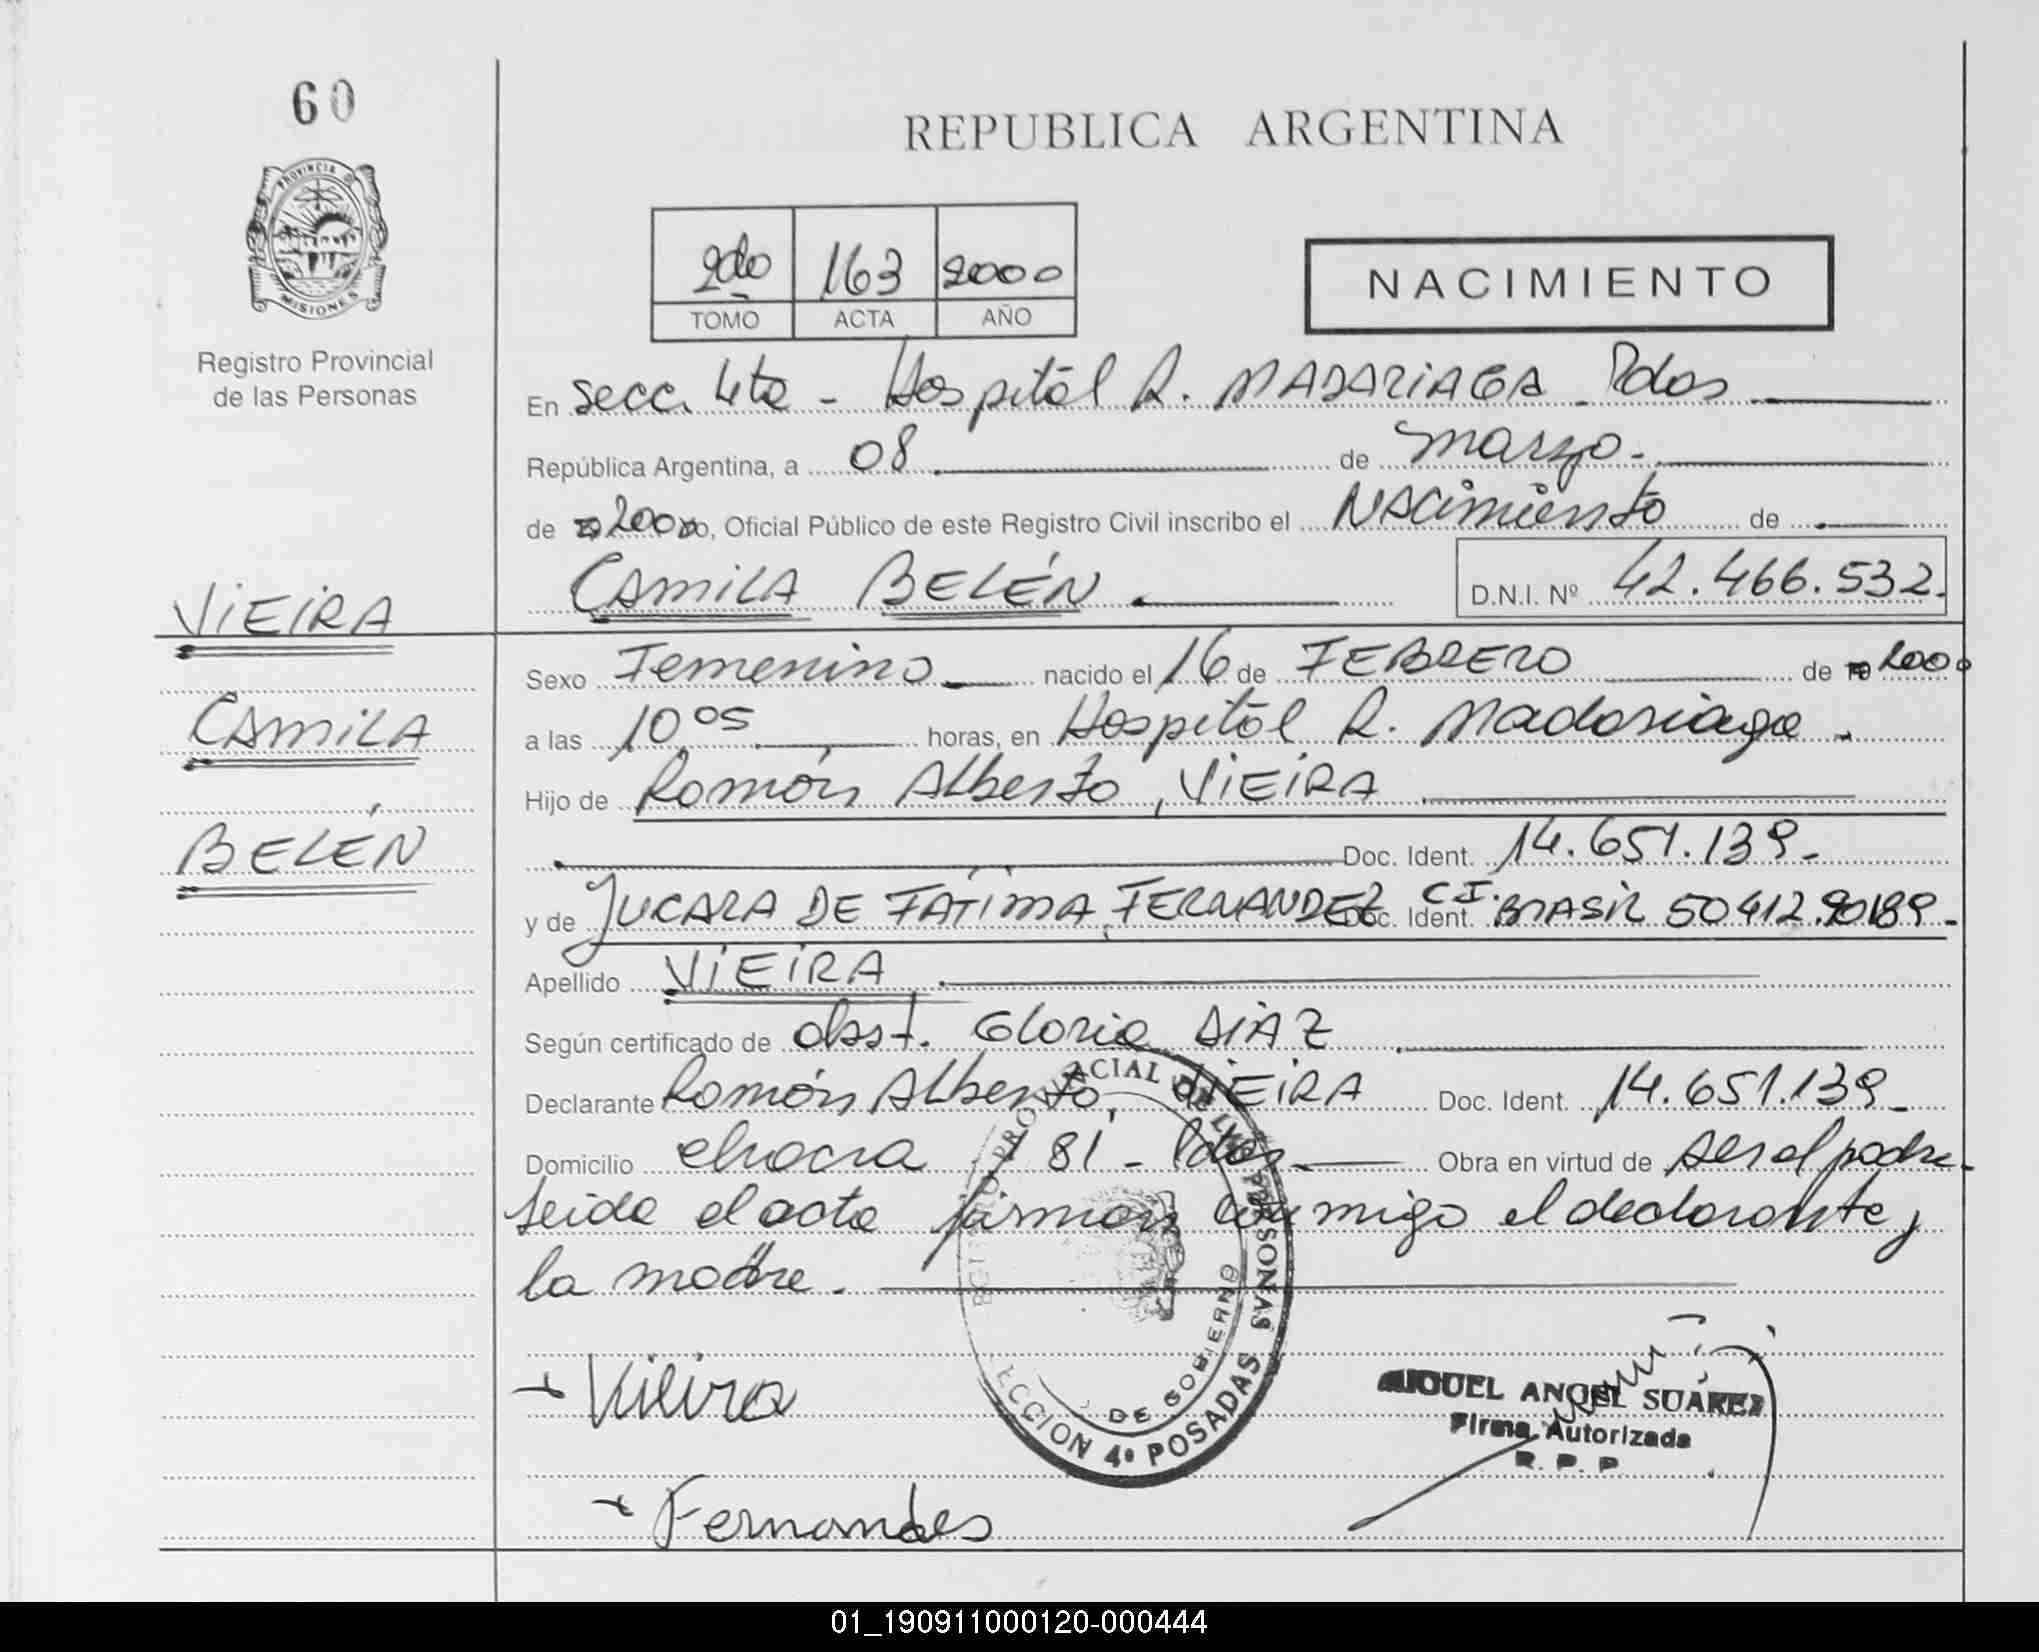 60
REPUBLICA ARGENTINA
PROVINCIA DE
MISIONES
Registro Provincial
de las Personas
2do 163 2000
TOMO ACTA AÑO
NACIMIENTO
En Secc. 4ta - Hospital R. MADARIAGA - Pdas
República Argentina, a 08 de marzo.
de 2000, Oficial Público de este Registro Civil inscribo el NACimiento de
CAMILA BELÉN D.N.I. Nº 42.466.532.
VIEIRA
CAMILA
BELÉN
Sexo Femenino nacido el 16 de FEBRERO de 2000
a las 10 05 horas, en Hospital R. Madariaga.
Hijo de Ramón Alberto, VIEIRA
Doc. Ident. 14.651.139.
y de JUCARA DE FATIMA, FERNANDEZ Doc. Ident. C.I. BRASIL 50412.90189.
Apellido VIEIRA
Según certificado de obst. Gloria DIAZ
Declarante Ramón Alberto, VIEIRA Doc. Ident. 14.651.139.
Domicilio chacra 181 - Pdas. Obra en virtud de ser el padre.
Leida el acta firman conmigo el declarante y
la madre.
Vieira
MIGUEL ANGEL SUAREZ
Firma Autorizada
R. P. P
Fernandes
PROVINCIAL DE LAS PERSONAS
DE GOBIERNO
ECCION 4ª POSADAS
01_190911000120-000444